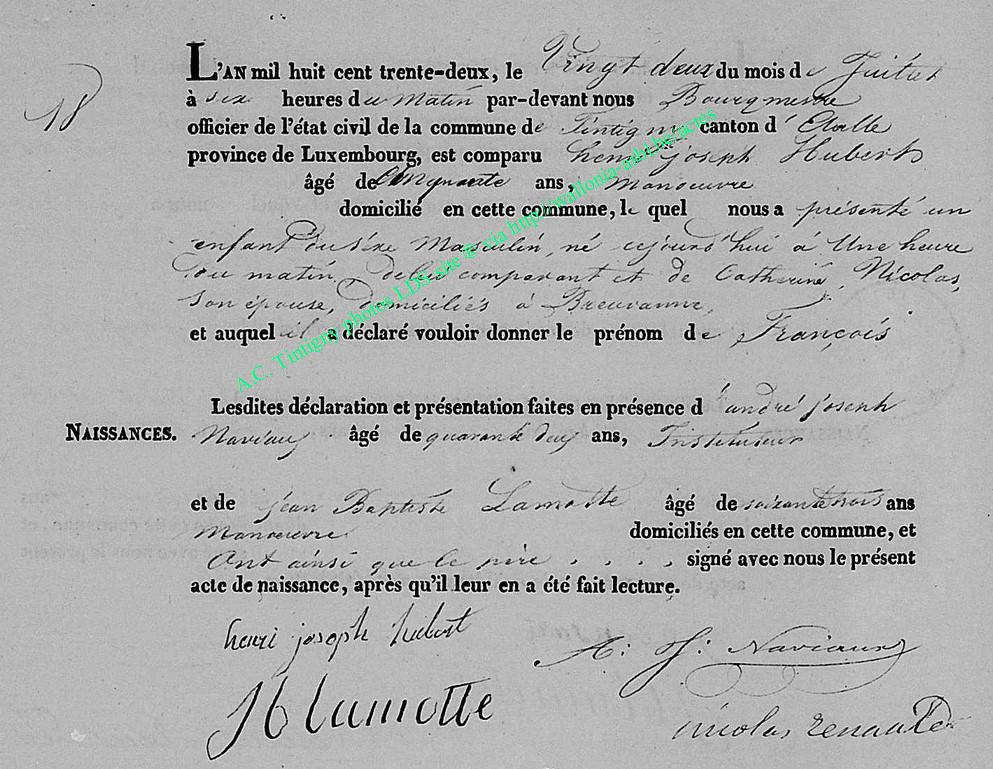 18
L'AN mil huit cent trente-deux, le Vingt deux du mois de Juillet
à six heures du Matin par-devant nous Bourgmestre
officier de l'état civil de la commune de Tintigny canton d'Etalle
province de Luxembourg, est comparu henri joseph Hubert
âgé de Cinquante ans, Manoeuvre
domicilié en cette commune, le quel nous a présenté un
enfant du sexe Masculin, né cejourd'hui à Une heure
du matin, de lui comparant et de Catherine Nicolas,
son épouse, domiciliés à Breuvanne,
et auquel il a déclaré vouloir donner le prénom de François
Lesdites déclaration et présentation faites en présence d'andré joseph
NAISSANCES. Naviaux âgé de quarante deux ans, Instituteur
et de jean Baptiste Lamotte âgé de soixante trois ans
Manoeuvre domiciliés en cette commune, et
Ont ainsi que le père . . . . signé avec nous le présent
acte de naissance, après qu'il leur en a été fait lecture.
henri joseph hubert
A: J: Naviaux
JB lamotte
nicolas renauld
A.C. Tintigny photos LDS site @ via http://wallonia-asbl.be/actes